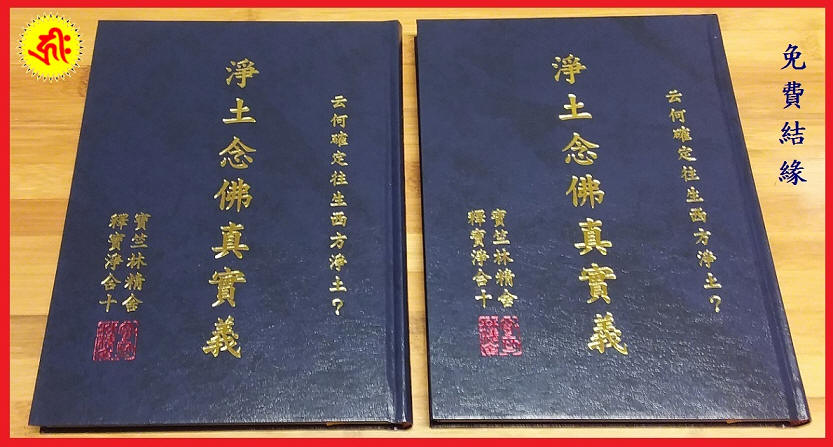 云何確定往生西方淨土？
淨土念佛真實義
寶竺林精舍
釋寶淨合十
云何確定往生西方淨土？
淨土念佛真實義
寶竺林精舍
釋寶淨合十
免費結緣